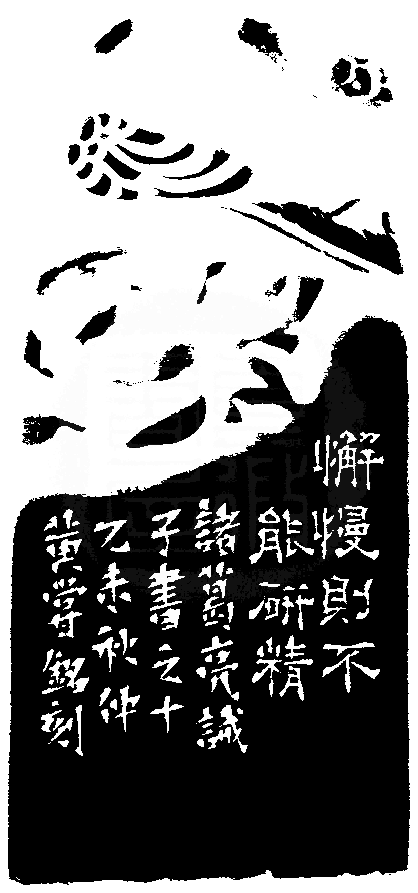 懈慢則不
能研精
諸葛亮誡
子書之十
乙未秋仲
黃嘗銘刻